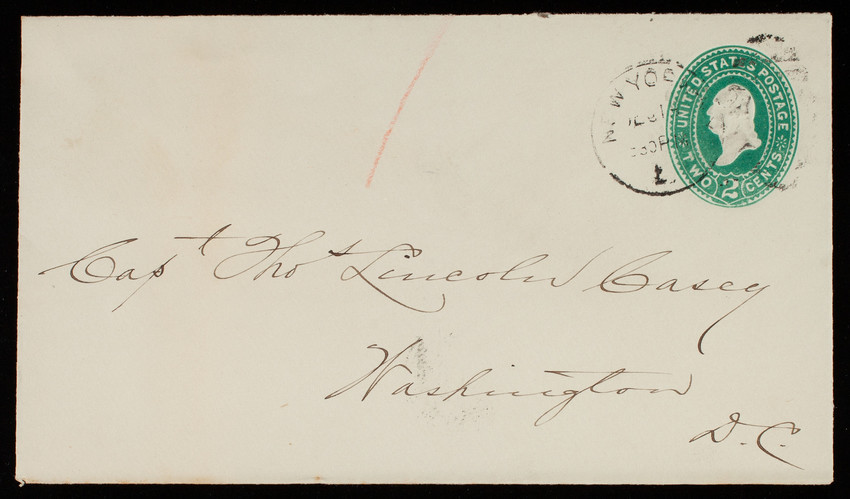 NEW YORK
530PM
L
UNITED STATES POSTAGE
TWO 2 CENTS
Capt Thos Lincoln Casey
Washington
D.C.